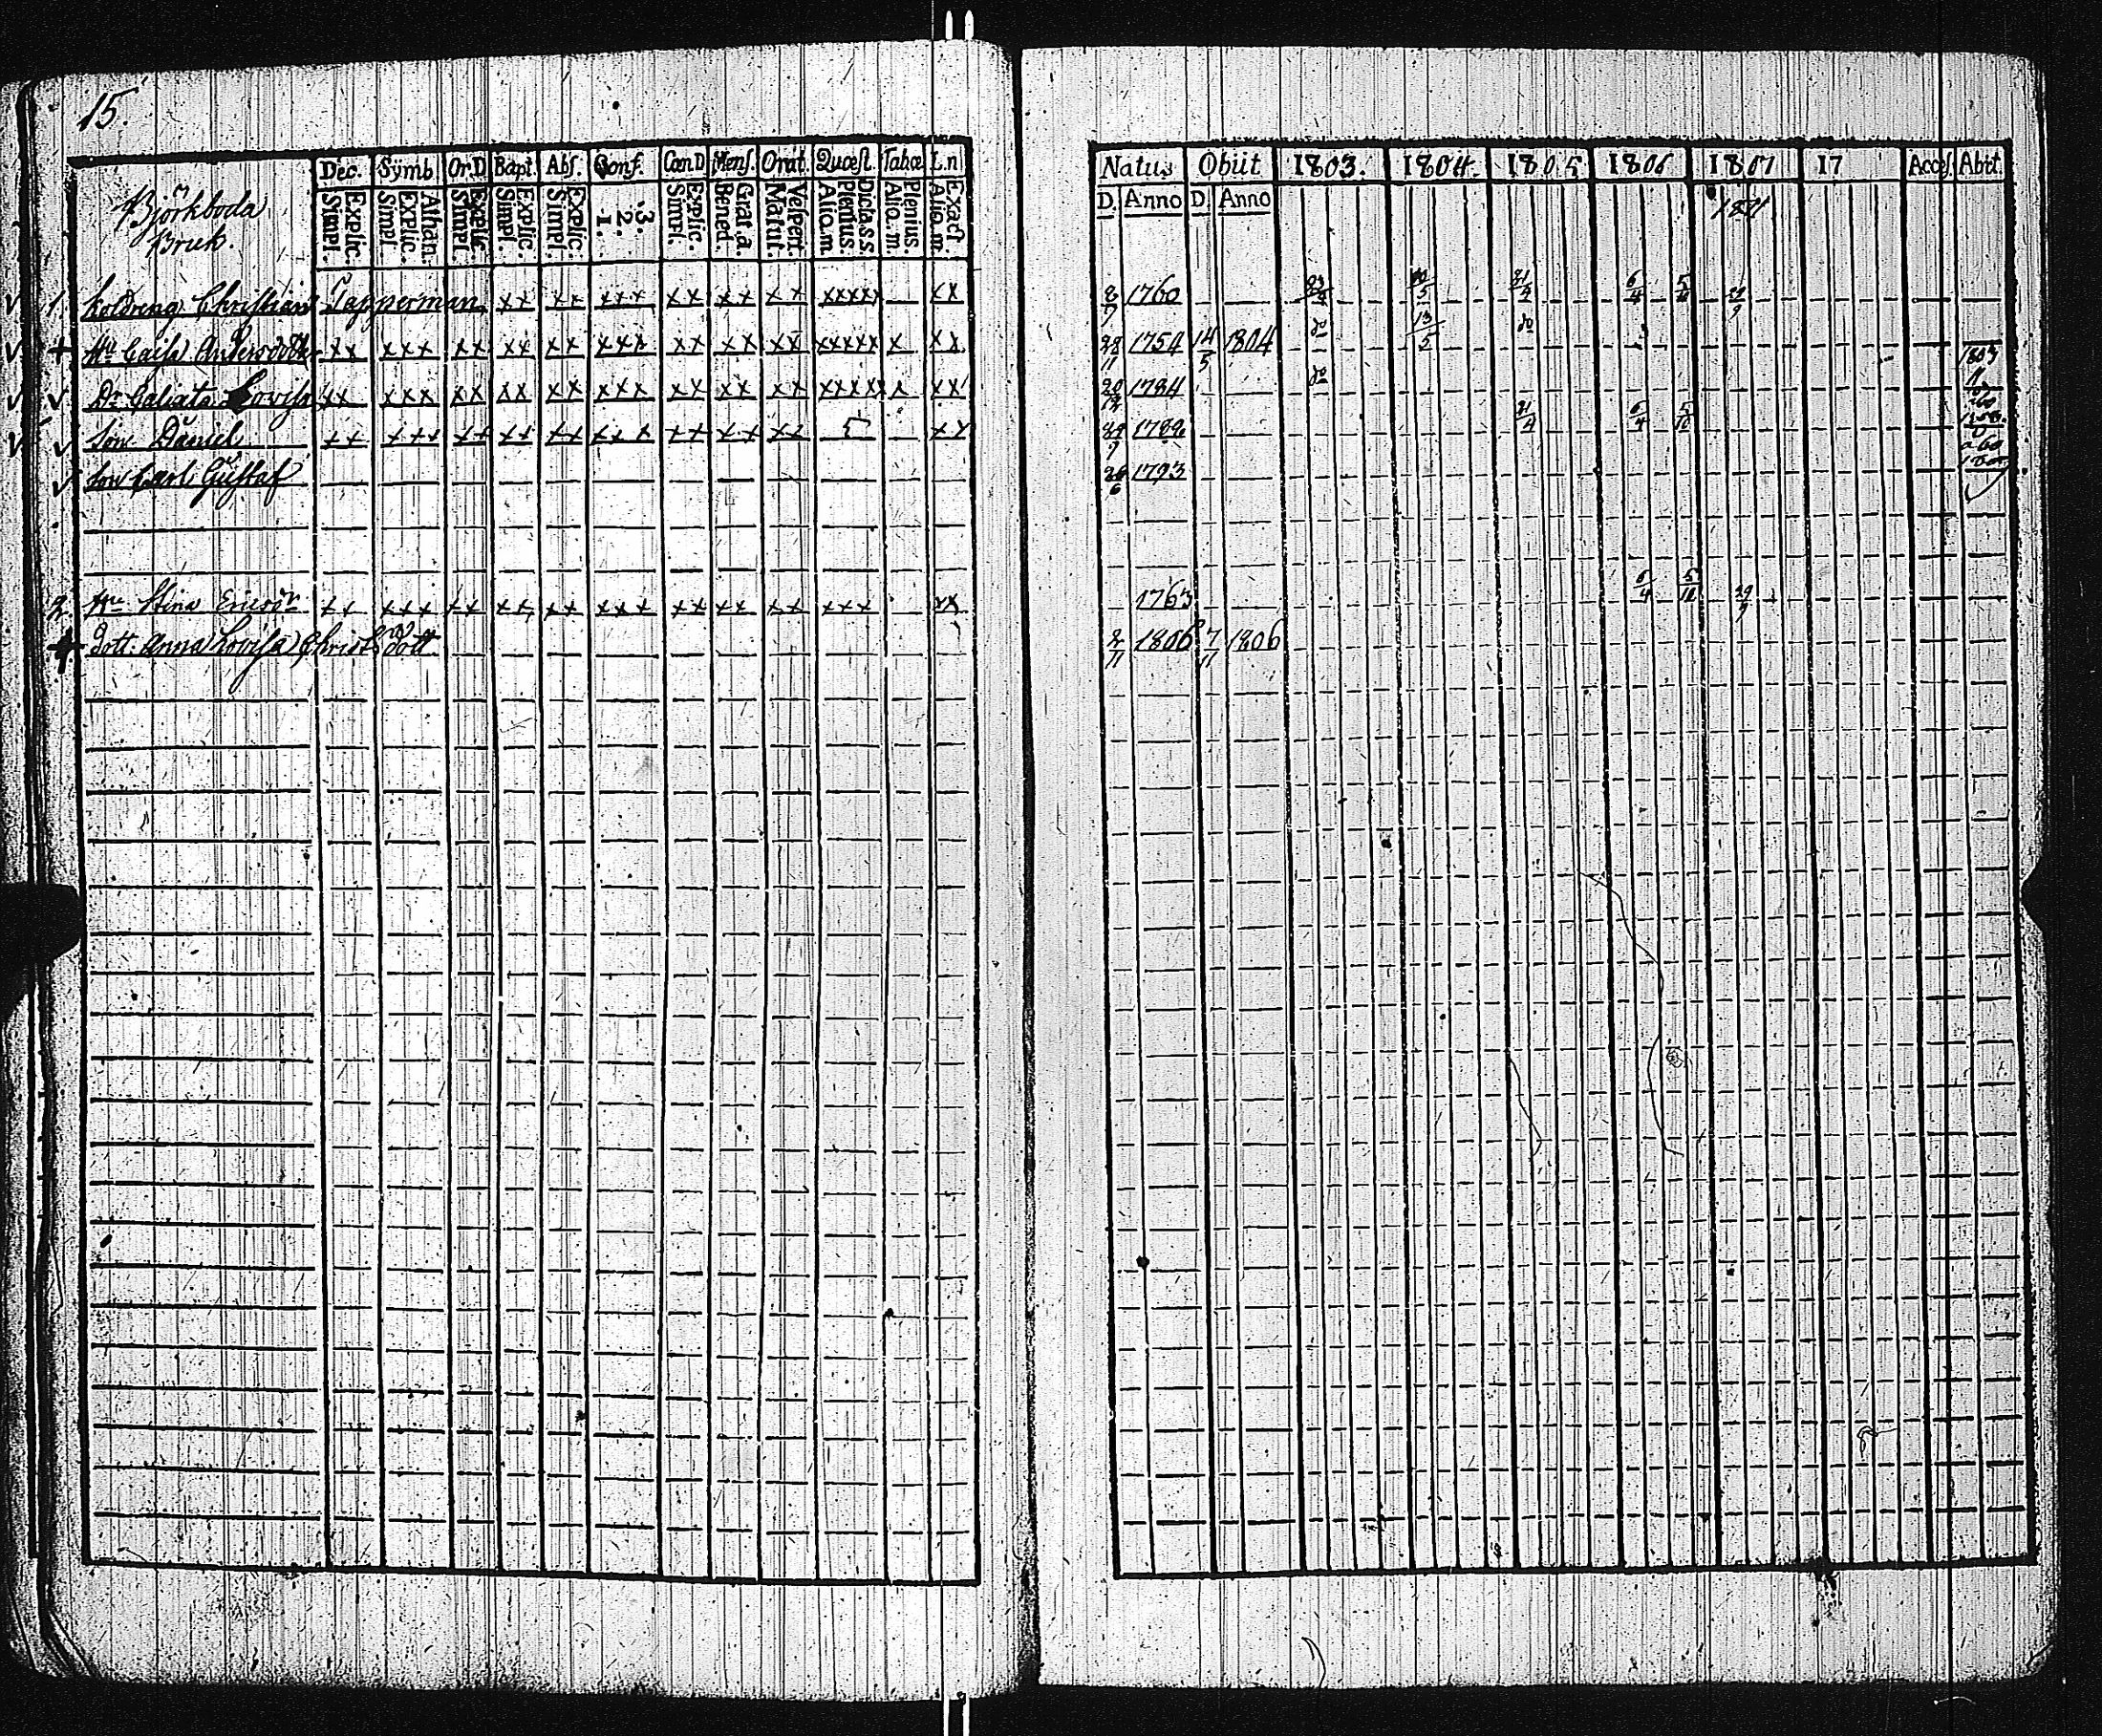 15.
Dec. Symb. Or.D Bapt. Abs. Conf. Cœn.D Mens. Orat. Quæst. Tabœ I.n
Björkboda
Bruk.
Simpl. Explic. Simpl. Explic. Athan. Simpl. Explic. Simpl. Explic. Simpl. Explic. 1. 2. 3. Simpl. Explic. Bened. Grat.a. Matut. Vespert. Alio.m. Plenius. Dicta.s.s. Alio.m. Plenius. A.lio.m. Exact.
1 Koldreng Christian Tapperman xx xx xxx xx xx xx xxxxx xx
+ Hu Caisa Andersdotter xx xxx xx xx xx xxx xx xx xx xxxxx x xx
Dr Lovisa xx xxx xx xx xx xxx xx xx xx xxxxx x xx
Son Daniel xx xxx xx xx xx xxx xx xx xx 5 xx
Son Carl Gustaf
2 Hu Stina Ericsdr xx xxx xx xx xx xxx xx xx xx xxx xx
+ Dott. Anna Lovisa Christ. dott
Natus Obiit 1803. 1804. 1805 1806 1807 17 Acces. Abiit.
D. Anno D. Anno
2/7 1760 6/4 5/10
28/11 1754 14/5 1804 do 13/5 do
1784 do 1803
1789 21/4 6/4 5/10
1793
1763 6/4 5/10 29/9
2/11 1806 7/11 1806